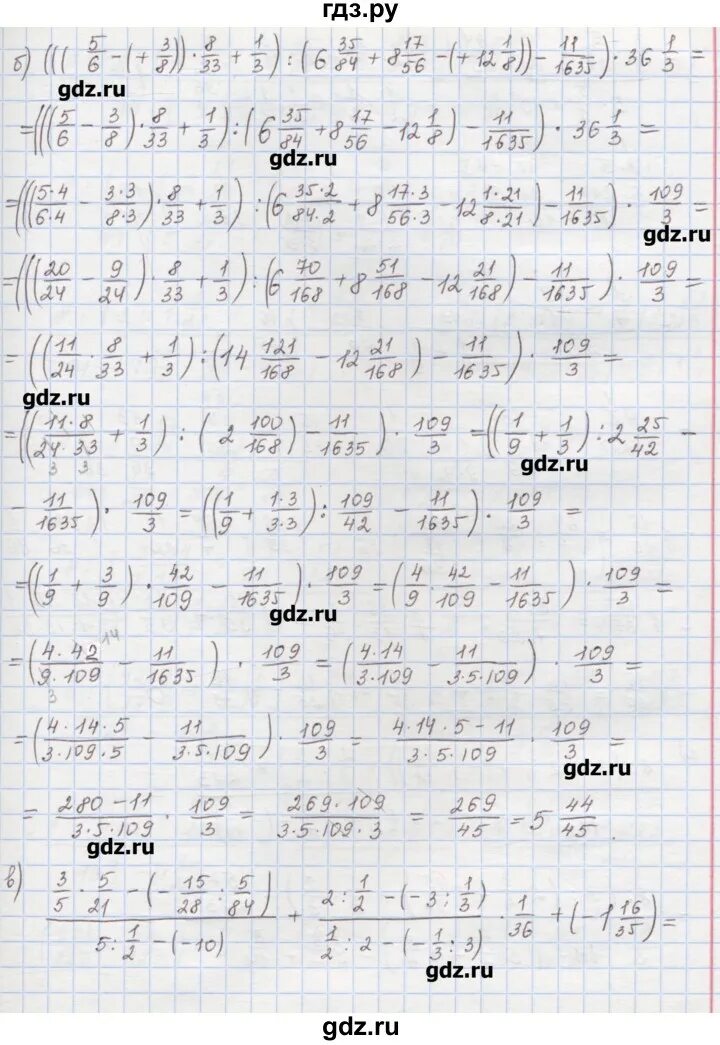 гдз.ру
б) (((( 5/6 − (+ 3/8)) · 8/33 + 1/3) : (6 35/84 + 8 17/56 − (+12 1/8)) − 11/1635) · 36 1/3 =
gdz.ru
= (((5/6 − 3/8) · 8/33 + 1/3) : (6 35/84 + 8 17/56 − 12 1/8) − 11/1635) · 36 1/3 =
gdz.ru
= (((5·4/6·4 − 3·3/8·3) · 8/33 + 1/3) : (6 35·2/84·2 + 8 17·3/56·3 − 12 1·21/8·21) − 11/1635) · 109/3 =
gdz.ru
= (((20/24 − 9/24) · 8/33 + 1/3) : (6 70/168 + 8 51/168 − 12 21/168) − 11/1635) · 109/3 =
gdz.ru
= ((11/24 · 8/33 + 1/3) : (14 121/168 − 12 21/168) − 11/1635) · 109/3 =
gdz.ru
= ((11·8/24·33 + 1/3) : (2 100/168) − 11/1635) · 109/3 = ((1/9 + 1/3) : 2 25/42 −
3 3
gdz.ru
− 11/1635) · 109/3 = ((1/9 + 1·3/3·3) : 109/42 − 11/1635) · 109/3 =
= ((1/9 + 3/9) · 42/109 − 11/1635) · 109/3 = (4/9 · 42/109 − 11/1635) · 109/3 =
gdz.ru
14
= (4·42/9·109 − 11/1635) · 109/3 = (4·14/3·109 − 11/3·5·109) · 109/3 =
3
= (4·14·5/3·109·5 − 11/3·5·109) · 109/3 = 4·14·5−11/3·5·109 · 109/3 =
gdz.ru
= 280−11/3·5·109 · 109/3 = 269·109/3·5·109·3 = 269/45 = 5 44/45.
gdz.ru
в) 3/5 · 5/21 − (− 15/28 : 5/84) / 5 : 1/2 − (−10) + 2 : 1/2 − (−3 : 1/3) / 1/2 : 2 − (− 1/3 : 3) · 1/36 + (−1 16/35) =
gdz.ru
gdz.ru